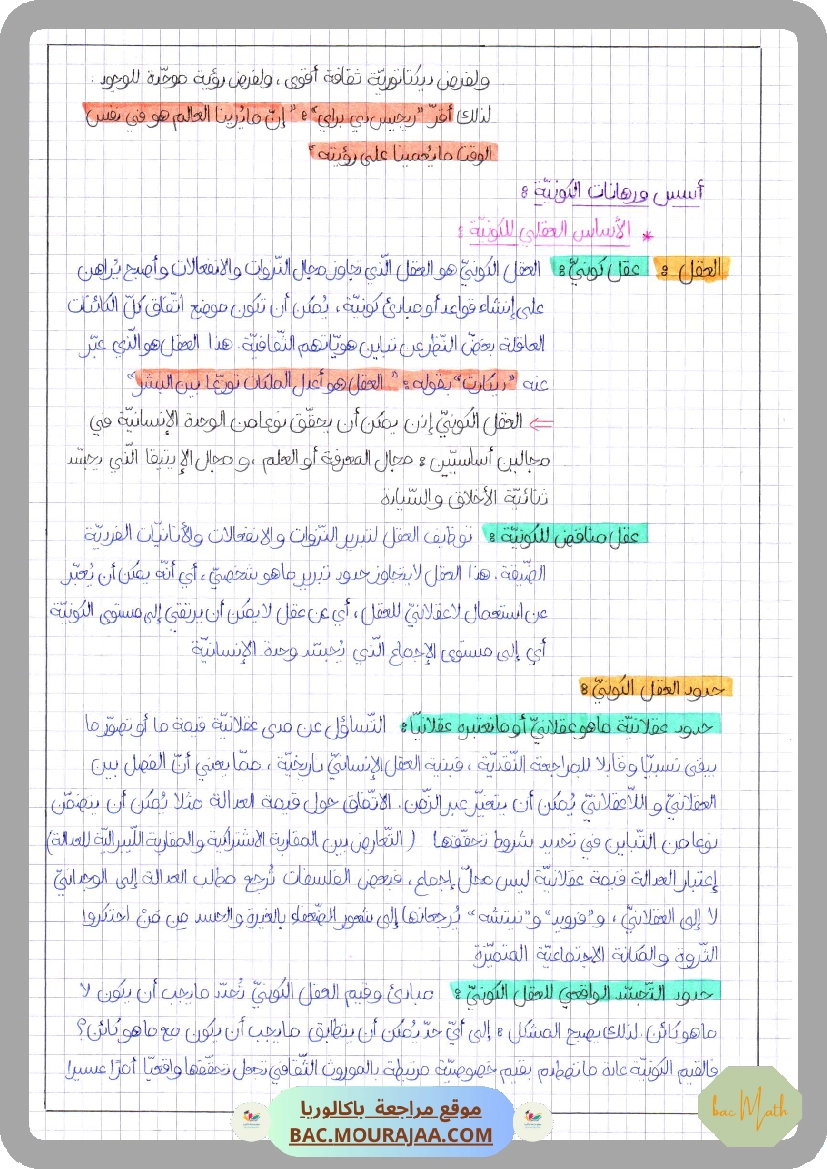 ولفرض ديكتاتوريّة ثقافة أقوى، ولفرض رؤية موحّدة للوجود.
لذلك أقرّ "ريجيس دي براي": "إنّ ما يُرينا العالم هو في نفس
الوقت ما يُعمينا على رؤيته"
أسس ورهانات الكونيّة:
* الأساس العقلي للكونيّة:
العقل: عقل كونيّ: العقل الكونيّ هو العقل الّذي تجاوز مجال النّزوات والانفعالات وأصبح يُراهن
على إنشاء قواعد أو مبادئ كونيّة، يُمكن أن تكون موضع اتّفاق كلّ الكائنات
العاقلة بغضّ النّظر عن تباين هويّاتهم الثّقافيّة. هذا العقل هو الّذي عبّر
عنه "ديكارت" بقوله: "العقل هو أعدل الملكات توزّعا بين البشر"
⇐ العقل الكونيّ إذن يمكن أن يحقّق نوعا من الوحدة الإنسانيّة في
مجالين أساسيّين: مجال المعرفة أو العلم، و مجال الإيتيقا الّتي يجسّد
ثنائيّة الأخلاق والسّياسة
عقل مناقض للكونيّة: توظيف العقل لتبرير النّزوات والانفعالات والأنانيّات الفرديّة
الضّيقة. هذا العقل لا يتجاوز حدود تبرير ما هو شخصيّ، أي أنّه يمكن أن يُعبّر
عن استعمال لاعقلانيّ للعقل، أي عن عقل لا يمكن أن يرتقي إلى مستوى الكونيّة
أي إلى مستوى الإجماع الّذي يُجسّد وحدة الإنسانيّة
حدود العقل الكونيّ:
حدود عقلانيّة ما هو عقلانيّ أو ما نعتبره عقلانيّا: التّساؤل عن مدى عقلانيّة قيمة ما أو تصوّر ما
يبقى نسبيّا وقابلا للمراجعة النّقديّة، فبنية العقل الإنسانيّ تاريخيّة، ممّا يعني أنّ الفصل بين
العقلانيّ و اللّاعقلانيّ يُمكن أن يتغيّر عبر الزّمن. الاتّفاق حول قيمة العدالة مثلا يُمكن أن يتضمّن
نوعا من التّباين في تحديد شروط تحقّقها (التّعارض بين المقاربة الاشتراكية والمقاربة اللّيبراليّة للعدالة)
إعتبار العدالة قيمة عقلانيّة ليس محلّ إجماع، فبعض الفلسفات تُرجع مطلب العدالة إلى الوجدانيّ
لا إلى العقلانيّ، و"فرويد" و"نيتشه" يُرجعانها إلى شعور الضّعفاء بالغيرة والحسد من مَنْ احتكروا
الثّروة والمكانة الاجتماعيّة المتميّزة
حدود التّجسّد الواقعي للعقل الكونيّ: مبادئ وقيم العقل الكونيّ تُحدّد ما يجب أن يكون لا
ما هو كائن. لذلك يصبح المشكل: إلى أيّ حدّ يُمكن أن يتطابق ما يجب أن يكون مع ما هو كائن؟
فالقيم الكونيّة عادة ما تصطدم بقيم خصوصيّة مرتبطة بالموروث الثّقافي تجعل تحقّقها واقعيّا أمرًا عسيرا
موقع مراجعة باكالوريا
BAC.MOURAJAA.COM
bac Math